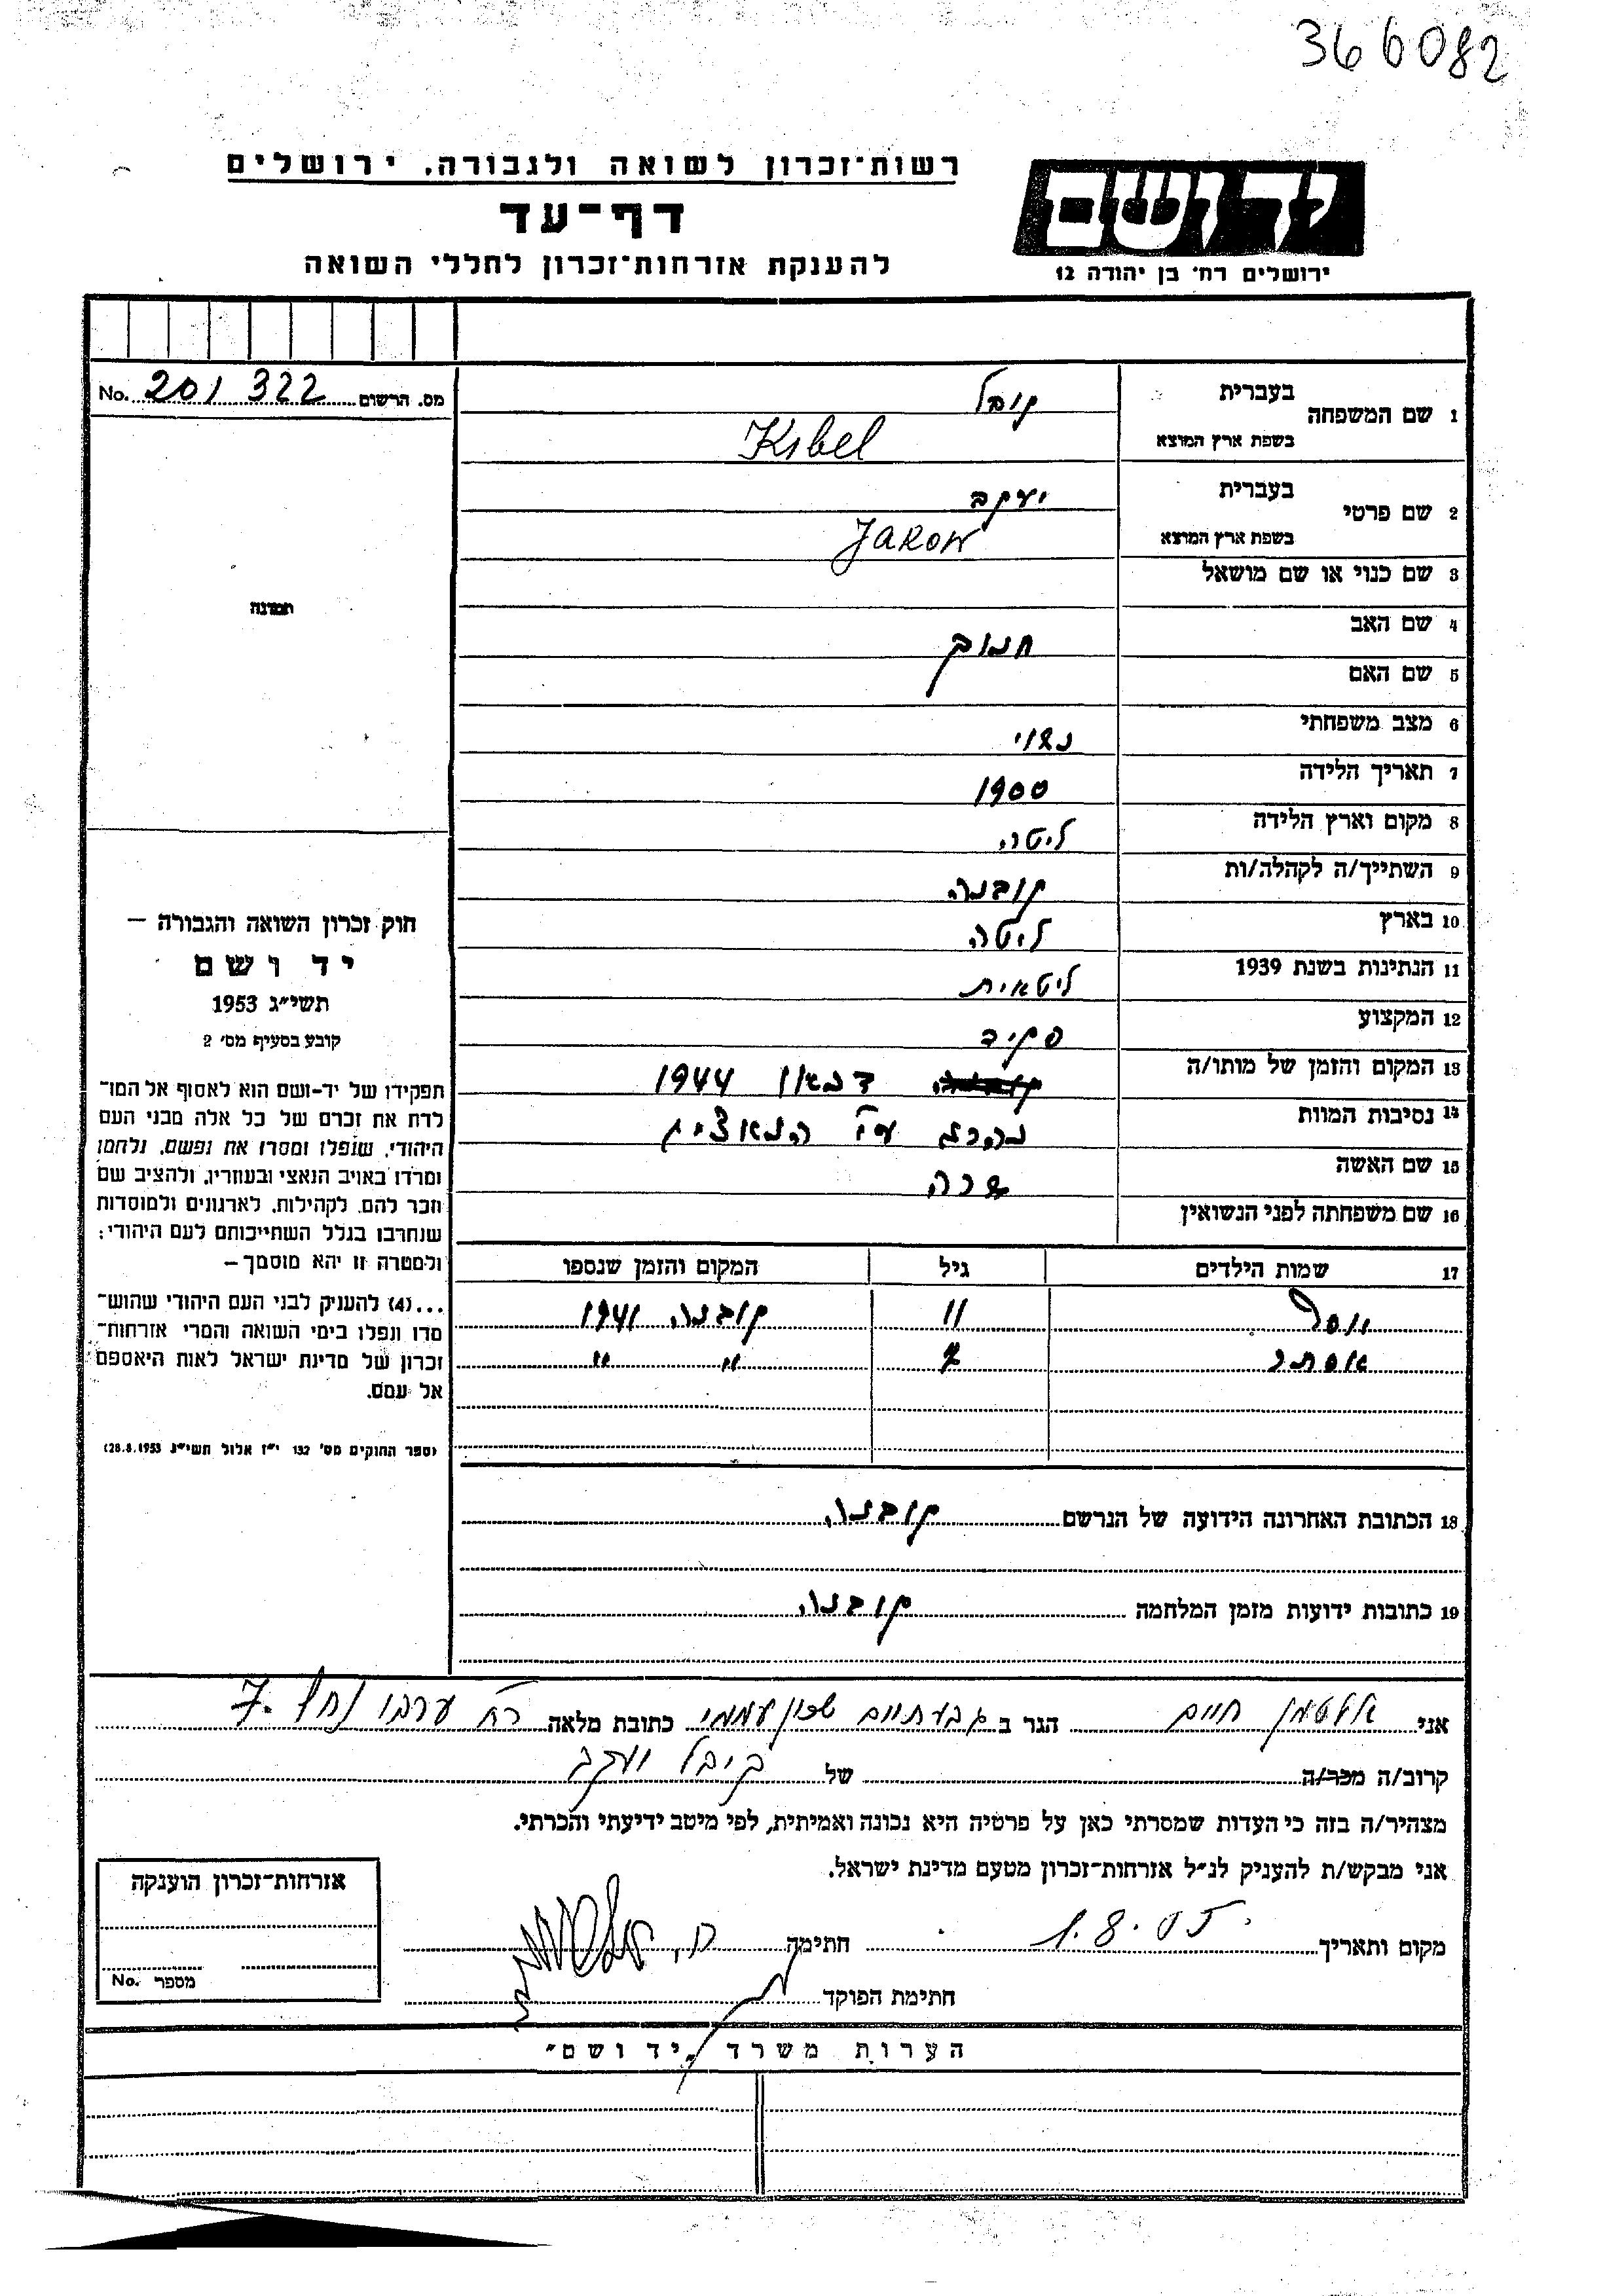 366082
רשות־זכרון לשואה ולגבורה, ירושלים
דף־עד
להענקת אזרחות־זכרון לחללי השואה
יד ושם
ירושלים רח' בן יהודה 12
מס. הרשום 201 322 No.
תמונה
חוק זכרון השואה והגבורה —
יד ושם
תשי"ג 1953
קובע בסעיף מס' 2
תפקידו של יד-ושם הוא לאסוף אל המו־
לדת את זכרם של כל אלה מבני העם
היהודי, שנפלו ומסרו את נפשם, נלחמו
ומרדו באויב הנאצי ובעוזריו, ולהציב שם
וזכר להם, לקהילות, לארגונים ולמוסדות
שנחרבו בגלל השתייכותם לעם היהודי;
ולמטרה זו יהא מוסמך —
...(4) להעניק לבני העם היהודי שהוש־
מדו ונפלו בימי השואה והמרי אזרחות־
זכרון של מדינת ישראל לאות היאספם
אל עמם.
(ספר החוקים מס' 132 י"ז אלול תשי"ג 28.8.1953)
1 שם המשפחה
בעברית קובל
בשפת ארץ המוצא
2 שם פרטי
בעברית יעקב
בשפת ארץ המוצא
3 שם כנוי או שם מושאל
4 שם האב חנוך
5 שם האם
6 מצב משפחתי נשוי
7 תאריך הלידה 1900
8 מקום וארץ הלידה ליטה
9 השתייך/ה לקהלה/ות קובנה
10 בארץ ליטה
11 הנתינות בשנת 1939 ליטאית
12 המקצוע פקיד
13 המקום והזמן של מותו/ה קובנה דכאו 1944
14 נסיבות המוות נהרג ע"י הנאצים
15 שם האשה שרה
16 שם משפחתה לפני הנשואין
17 שמות הילדים גיל המקום והזמן שנספו
יוסף 11 קובנה 1941
אסתר " "
18 הכתובת האחרונה הידועה של הנרשם קובנה
19 כתובות ידועות מזמן המלחמה קובנה
אני אלטמן חיים הגר ב גבעתיים שכון עממי כתובת מלאה רח' ערבי נחל 7.
קרוב/ה מכר/ה של קובל יעקב
מצהיר/ה בזה כי העדות שמסרתי כאן על פרטיה היא נכונה ואמיתית, לפי מיטב ידיעתי והכרתי.
אני מבקש/ת להעניק לנ"ל אזרחות־זכרון מטעם מדינת ישראל.
מקום ותאריך 1.8.55 חתימה
חתימת הפוקד
אזרחות־זכרון הוענקה
מספר No.
הערות משרד "יד ושם"